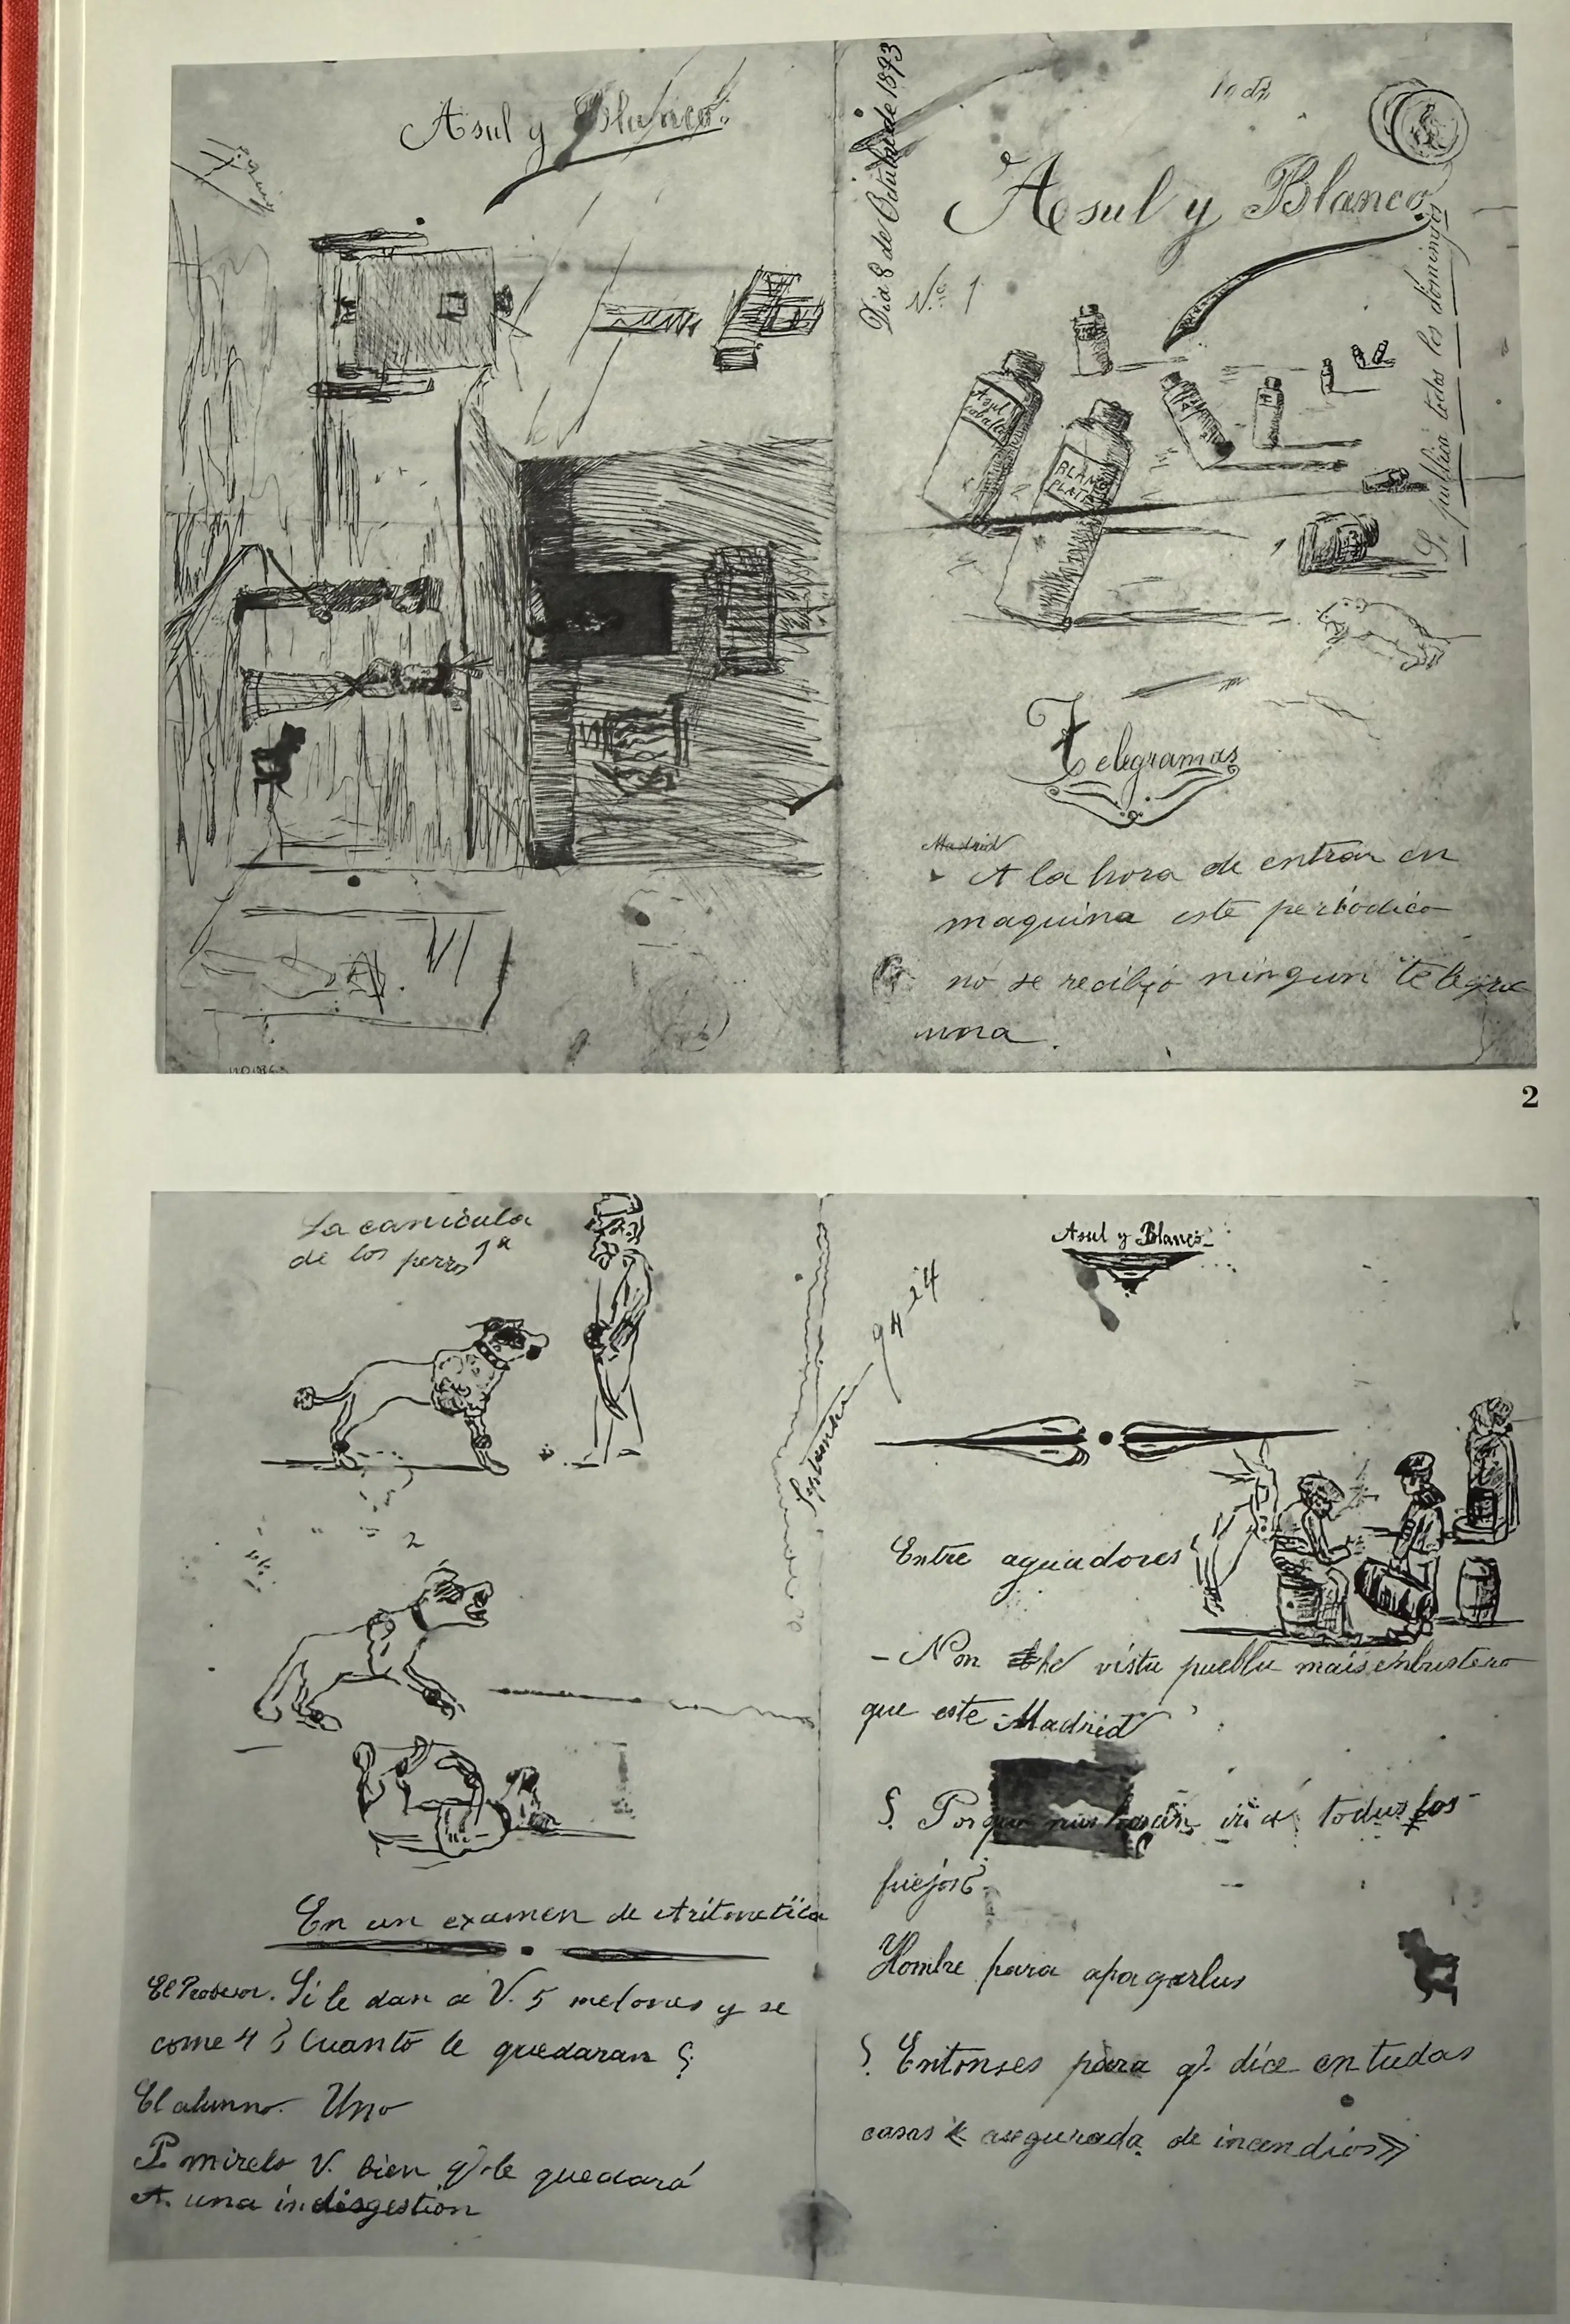 Asul y Blanco.
Dia 8 de Octubre de 1893
10 cts
Asul y Blanco.
Nº 1
Se publica todos los domingos
Asul
cobalto
BLANC
PLATA
Telegramas
Madrid
A la hora de entrar en
maquina este periodico
no se recibio ningun telegra
mma.
2
La canicula
de los perros 1ª
2
En un examen de Aritmetica
El Profesor. Si le dan a V. 5 melones y se
come 4 ¿Cuanto le quedaran?
El alumno. Uno
P. mirelo V. bien q. le quedará
A. una indisgestion
Asul y Blanco
Septiembre 94
Entre aguadores
- Non he vistu pueblu mais enbustero
que este Madrid
¿ Porque nus hacen ir a todus los
fuejos?
Hombre para apagarlus
¿ Entonses para q. dice en tudas
casas « asegurada de incendios»